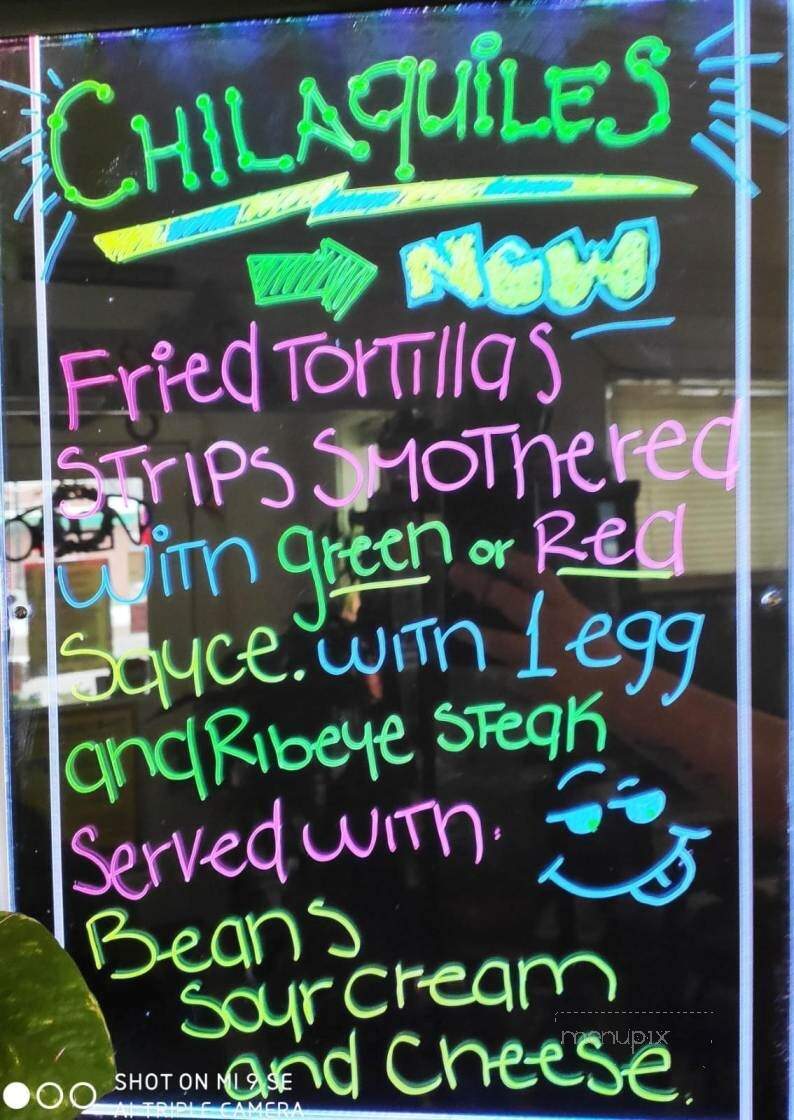 CHILAQUILES
NEW
Fried Tortillas
Strips Smothered
With green or Red
Sauce. With 1 egg
and Ribeye Steak
Served With:
Beans
Sour cream
and Cheese.
menupix
SHOT ON MI 9 SE
AI TRIPLE CAMERA